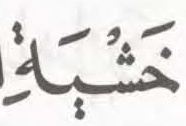 خَشْيَةِ